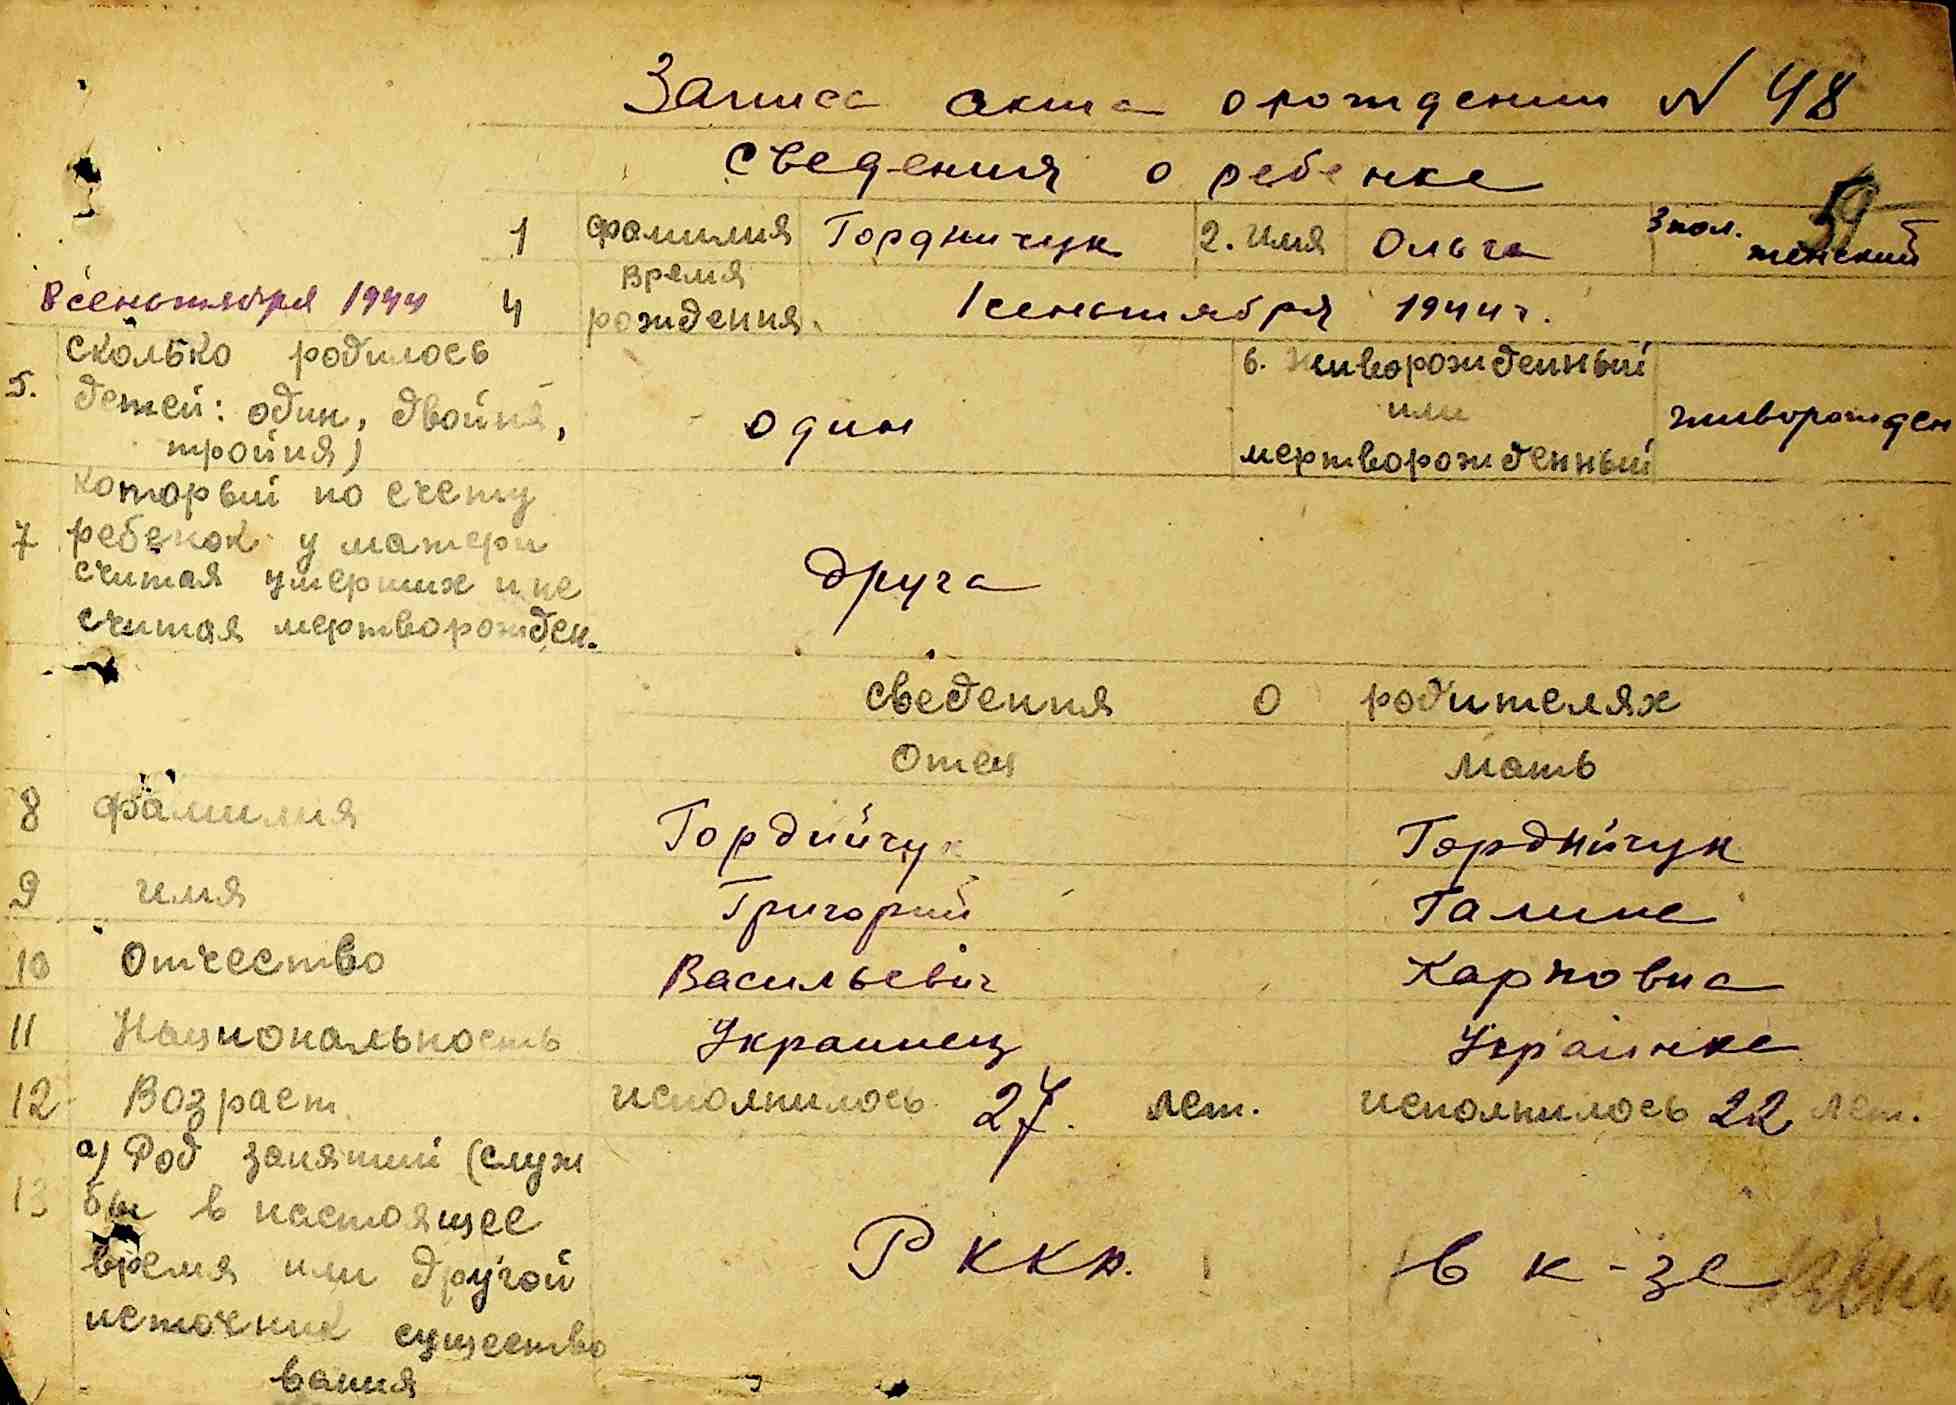 Записа акта о рождении № 48
59
сведения о ребенке
1 фамилия Гордничук 2. Имя Ольга 3 пол. женский
8 сеньтября 1944 4 время рождения. 1 сеньтября 1944 г.
5. сколько родилось
детей: один, двойня,
тройня)
один
6. Живорожденный
или
мертворожденный
живорожден
7 который по счету
ребенок у матери
считая умерших и не
считая мертворожден.
друга
сведения о родителях
Отец мать
8 фамилия Гордийчук Гордийчук
9 имя Григорий Галине
10 Отчество Васильевич Карповна
11 Национальность Украинец Украинке
12 Возраст. исполнилось 27. лет. исполнилось 22 лет.
13 а) Род занятий (служ
бы в настоящее
время или другой
источник существо
вания
Р ККА. в к-зе